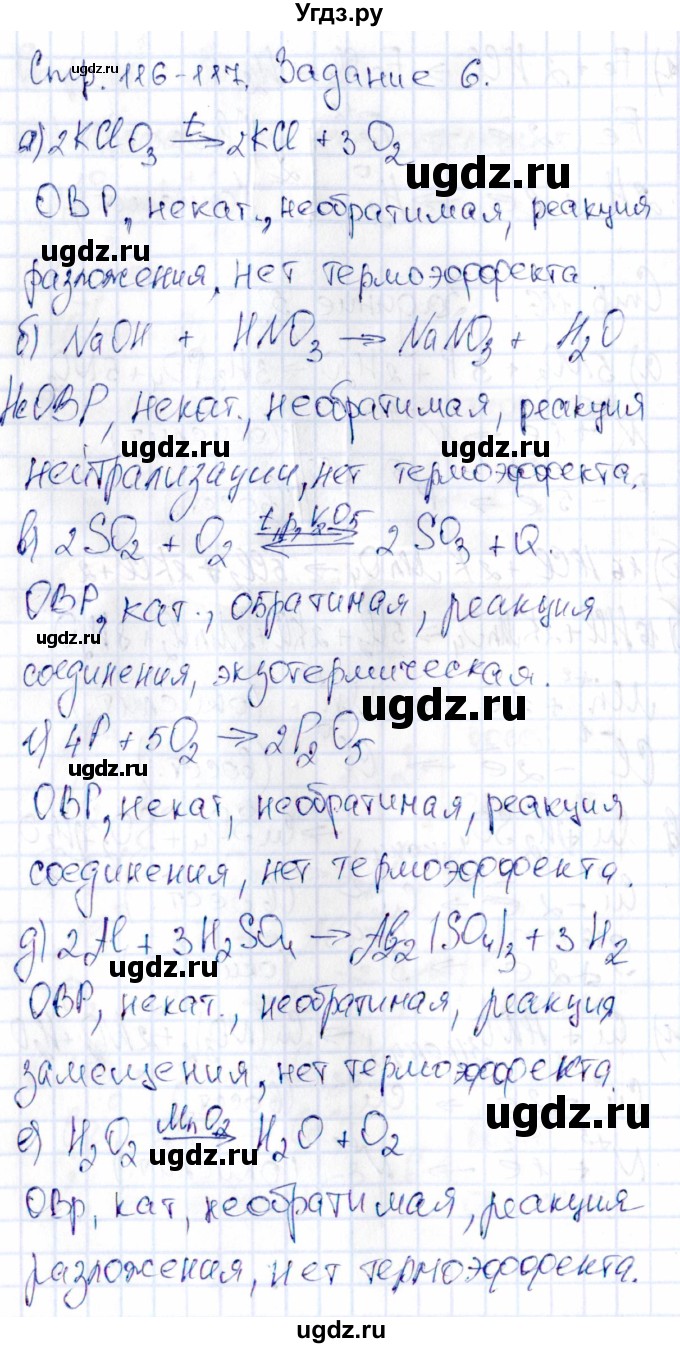 Угдз.ру
Стр. 116-117. Задание 6.
а) 2KClO3 t→ 2KCl + 3O2
ОВР, некат., необратимая, реакция
разложения, нет термоэффекта.
б) NaOH + HNO3 → NaNO3 + H2O
НеОВР, некат., необратимая, реакция
нейтрализации, нет термоэффекта.
в) 2SO2 + O2 t, p, V2O5 ⇄ 2SO3 + Q.
ОВР, кат., обратимая, реакция
соединения, экзотермическая.
г) 4P + 5O2 → 2P2O5
ОВР, некат, необратимая, реакция
соединения, нет термоэффекта.
д) 2Al + 3H2SO4 → Al2(SO4)3 + 3H2
ОВР, некат., необратимая, реакция
замещения, нет термоэффекта.
е) H2O2 MnO2→ H2O + O2
ОВр, кат, необратимая, реакция
разложения, нет термоэффекта.
ugdz.ru